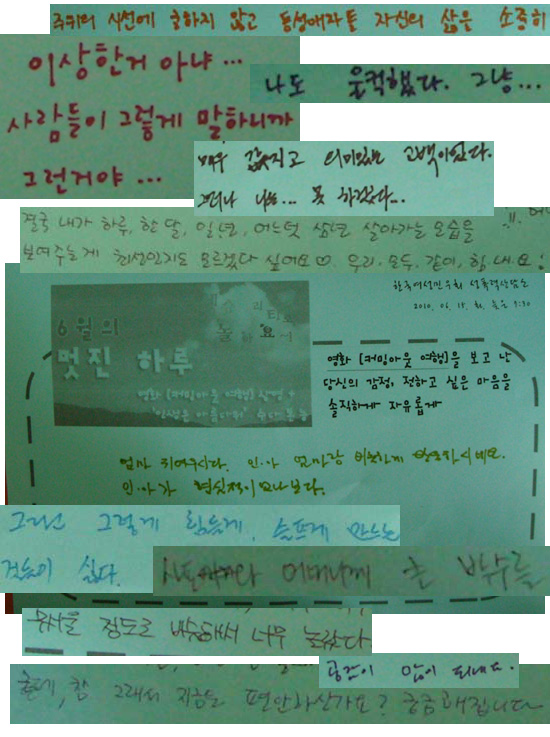 주위의 시선에 굴하지 않고 동성애자들 자신의 삶을 소중히
이상한거 아냐 ...
사람들이 그렇게 말하니까
그런거야 ...
나도 울컥했다. 그냥...
매우 값지고 의미있는 고백이었다.
떠나 나는... 못 하겠다...
결국 내가 하루, 한 달, 일년, 어느덧 삼년 살아가는 모습을
보여주는게 최선인지도 모르겠다 싶어요♡. 우리, 모두, 같이, 힘내요!
한국여성민우회 성폭력상담소
2010. 06. 15. 화. 늦은 7:30
6월의
멋진 하루
영화 [커밍아웃 여행] 상영 +
'인생은 아름다워' 수다몽땅
영화 [커밍아웃 여행]을 보고 난
당신의 감정, 전하고 싶은 마음을
솔직하게 자유롭게
엄마 귀여우시다. 인·아 엄마랑 비슷하게 반응하시네요.
인·아가 현실적이었나보다.
그러면 그렇게 힘들게, 슬프게 만드는
것들이 싫다.
어떠나에게 박수를
무서울 정도로 비슷해서 너무 놀랐다.
공감이 많이 되네요.
출데, 참 그래서 지금은 편안하신가요? 궁금해집니다